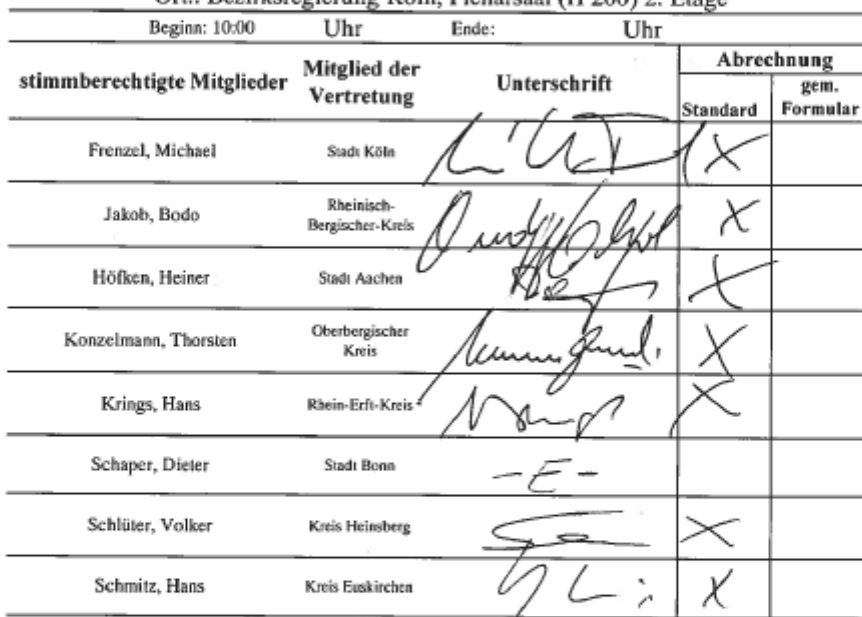 Ort.: Bezirksregierung Köln, Plenarsaal (H 200) 2. Etage
Beginn: 10:00 Uhr Ende: Uhr
stimmberechtigte Mitglieder Mitglied der Vertretung Unterschrift Abrechnung
Standard gem. Formular
Frenzel, Michael Stadt Köln X
Jakob, Bodo Rheinisch-Bergischer-Kreis X
Höfken, Heiner Stadt Aachen X
Konzelmann, Thorsten Oberbergischer Kreis X
Krings, Hans Rhein-Erft-Kreis X
Schaper, Dieter Stadt Bonn -E-
Schlüter, Volker Kreis Heinsberg X
Schmitz, Hans Kreis Euskirchen X